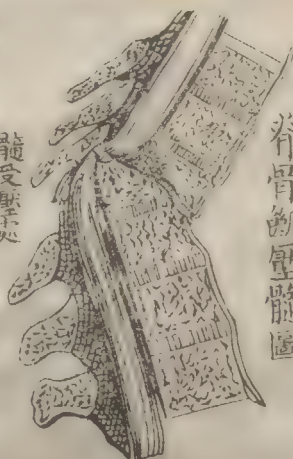 脊骨斷壓髓圖
髓受壓